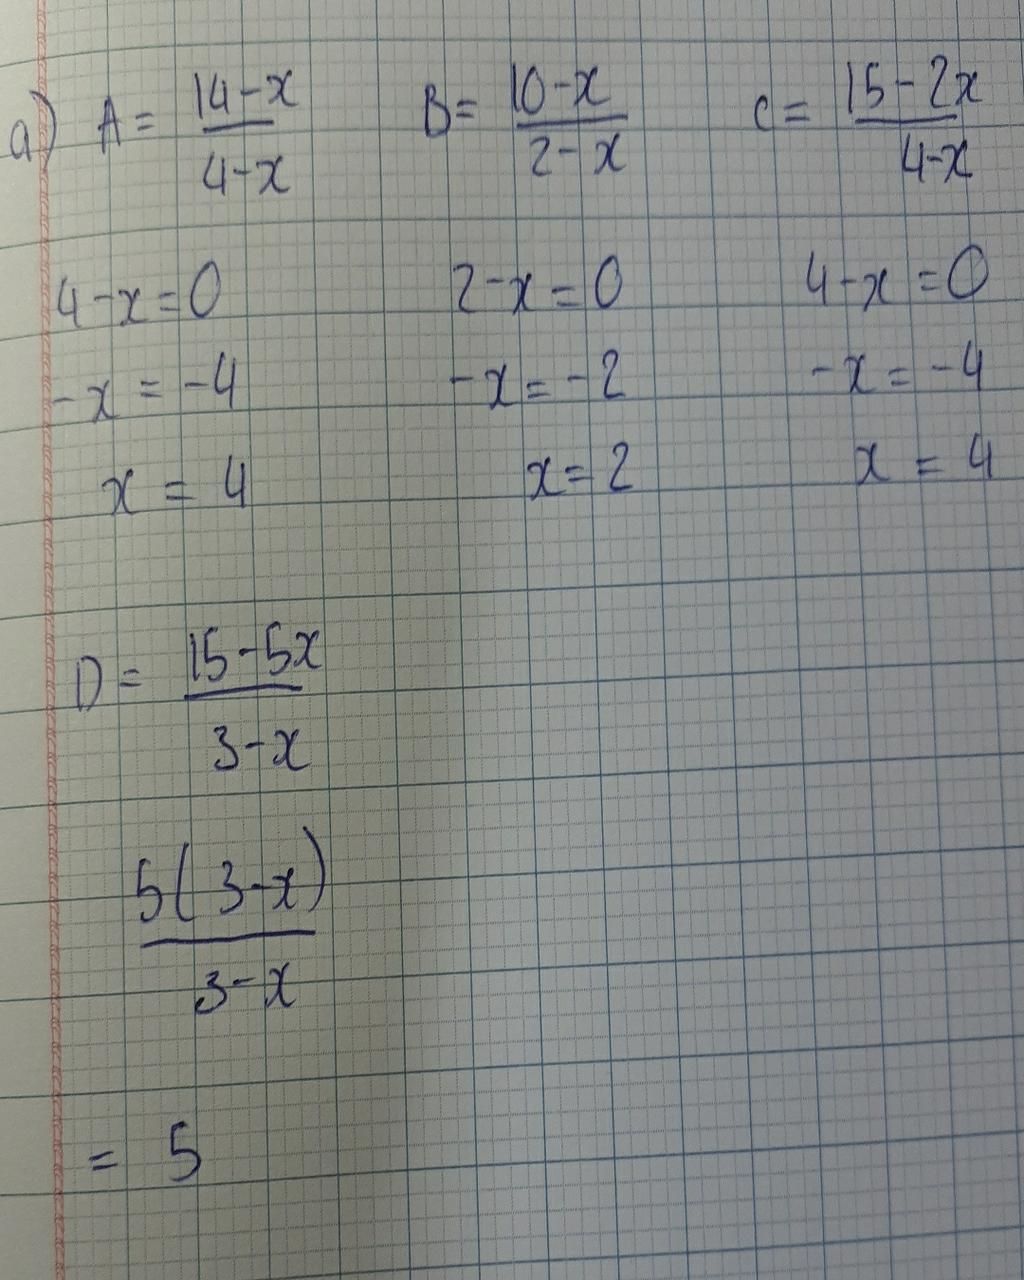 a) A = 14-x / 4-x   B = 10-x / 2-x   C = 15-2x / 4-x
4-x=0   2-x=0   4-x=0
-x=-4   -x=-2   -x=-4
x=4   x=2   x=4
D = 15-5x / 3-x
5(3-x) / 3-x
= 5